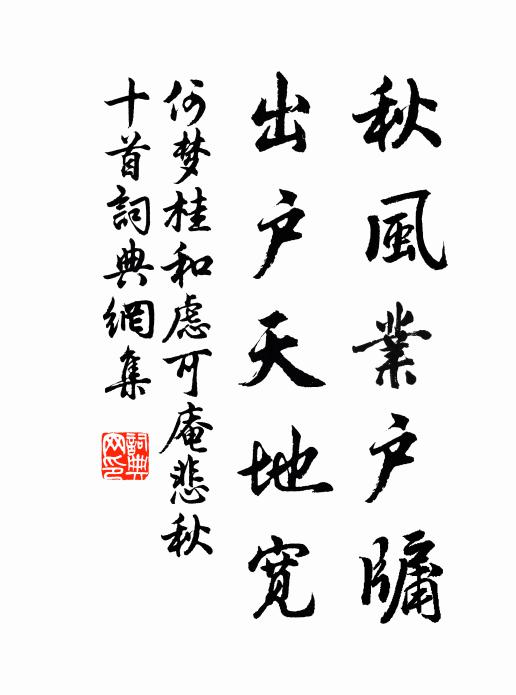 秋風業戶牖
出戶天地寬
何梦桂和慮可庵悲秋
十首詞典網集
詞典網印